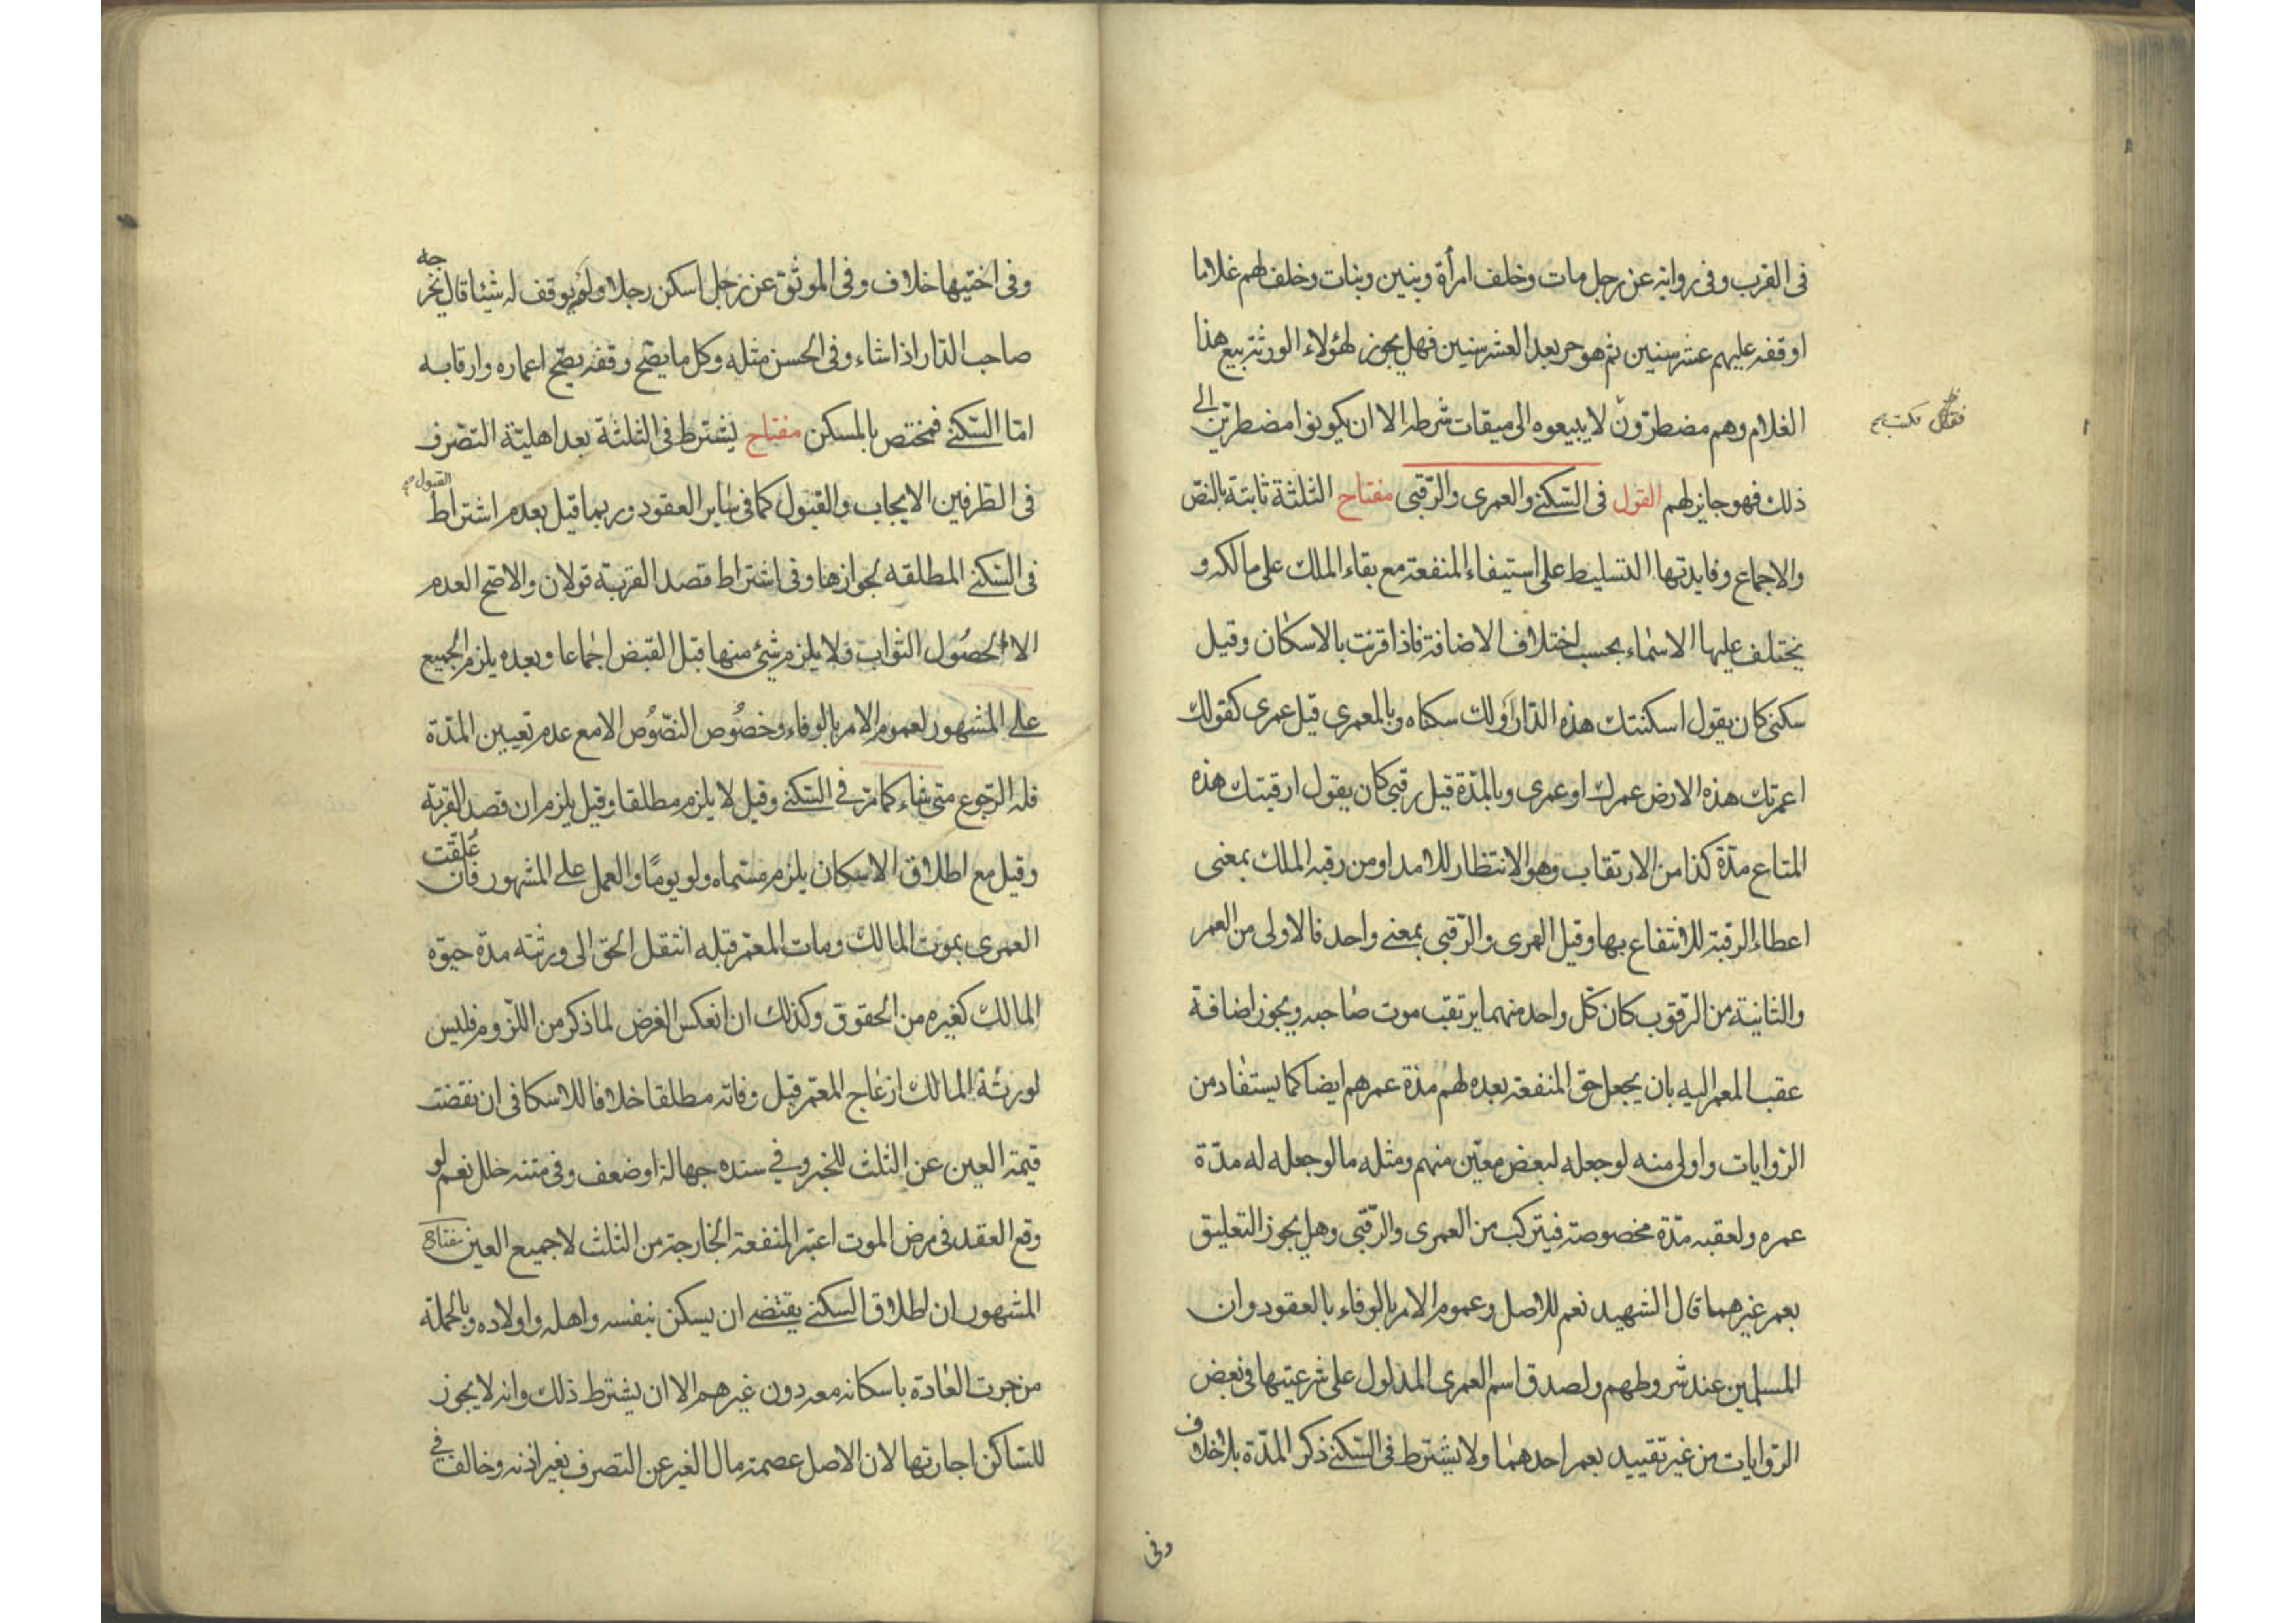 فى القرب وفى رواية عن رجل مات وخلف امرأة وبنين وبنات وخلف لهم غلاما
اوقفه عليهم عشر سنين ثم هو حر بعد العشر سنين فهل يجوز لهؤلاء الورثة بيع هذا
الغلام وهم مضطرّون لا يبيعوه الى ميقات شرطه الا ان يكونوا مضطرين الى
فكتب
ذلك فهو جايز لهم القول فى السّكنى والعمرى والرّقبى مفتاح الثلثة ثابتة بالنصّ
والاجماع وفايدتها التسليط على استيفاء المنفعة مع بقاء الملك على مالكه و
يختلف عليها الاسماء بحسب اختلاف الاضافة فاذا اقرنت بالاسكان وقيل
سكنى كان يقول اسكنتك هذه الدّار او لك سكناه وبالمعمرى قيل عمرى كقولك
اعمرتك هذه الارض عمرك او عمرى وبالمدّة قيل رقبى كان يقول ارقبتك هذه
المتاع مدّة كذا من الارتقاب وهو الانتظار للامد او من رقبه الملك بمعنى
اعطاء الرقبة للانتفاع بها وقيل العمرى والرّقبى بمعنى واحد فالاولى من العمر
والثانية من الرّقوب كان كل واحد منهما يرتقب موت صاحبه ويجوز اضافة
عقب المعمر اليه بان يجعل حق المنفعة بعده لهم مدّة عمرهم ايضا كما يستفاد من
الرّوايات واولى منه لو جعله لبعض معيّن منهم ومثله ما لو جعله له مدّة
عمره ولعقبه مدّة مخصوصة فيتركب من العمرى والرّقبى وهل يجوز التعليق
بعمر غيرهما قال الشهيد نعم للاصل وعموم الامر بالوفاء بالعقود وان
المسلمين عند شروطهم ولصدق اسم العمرى المدلول على شرعيتها فى بعض
الرّوايات من غير تقييد بعمر احدهما ولا يشترط فى السّكنى ذكر المدّة بلا خلاف
وفى
وفى اختيها خلاف وفى الموثق عن رجل اسكن رجلا ولم يوقف له شيئا قال يخرجه
صاحب الدّار اذا شاء وفى الحسن مثله وكل ما يصح وقفه يصّح اعماره وارقابه
امّا السّكنى فمختص بالمسكن مفتاح يشترط فى الثلثة بعد اهليّة التصّرف
فى الطّرفين الايجاب والقبول كما فى ساير العقود وربما قيل بعدم اشتراط القبول
فى السّكنى المطلقه لجوازها وفى اشتراط قصد القربة قولان والاصح العدم
الا لحصُول الثواب ولا يلزم شئ منها قبل القبض اجماعا وبعده يلزم الجميع
على المشهور لعموم الامر بالوفاء وخصُوص النصّوُص الا مع عدم تعيين المدّة
فله الرّجوع متى شاء كما مرّ فى السّكنى وقيل لا يلزم مطلقا وقيل يلزم ان قصد القربة
وقيل مع اطلاق الاسكان يلزم مسّماه ولو يومًا والعمل على المشهور فان عُلقّت
العمرى بموت المالك ومات المعمّر قبله انتقل الحق الى ورثته مدّة حيوة
المالك كغيره من الحقوق وكذلك ان انعكس الفرض لما ذكر من اللزوم فليس
لورثة المالك ازعاج المعمّر قبل وفاته مطلقا خلافا للاسكافى ان نقضت
قيمة العين عن الثلث للخبر وفى سنده جهالة او ضعف وفى متنه خلل نعم لو
وقع العقد فى مرض الموت اعتبر المنفعة الخارجة من الثلث لا جميع العين مفتاح
المشهور ان اطلاق السكنى يقتضى ان يسكن بنفسه واهله واولاده وبالجملة
من جرت العادة باسكانه معه دون غيرهم الا ان يشترط ذلك وانه لا يجوز
للسّاكن اجارتها لان الاصل عصمة مال الغير عن التصرف بغير اذنه وخالف فى